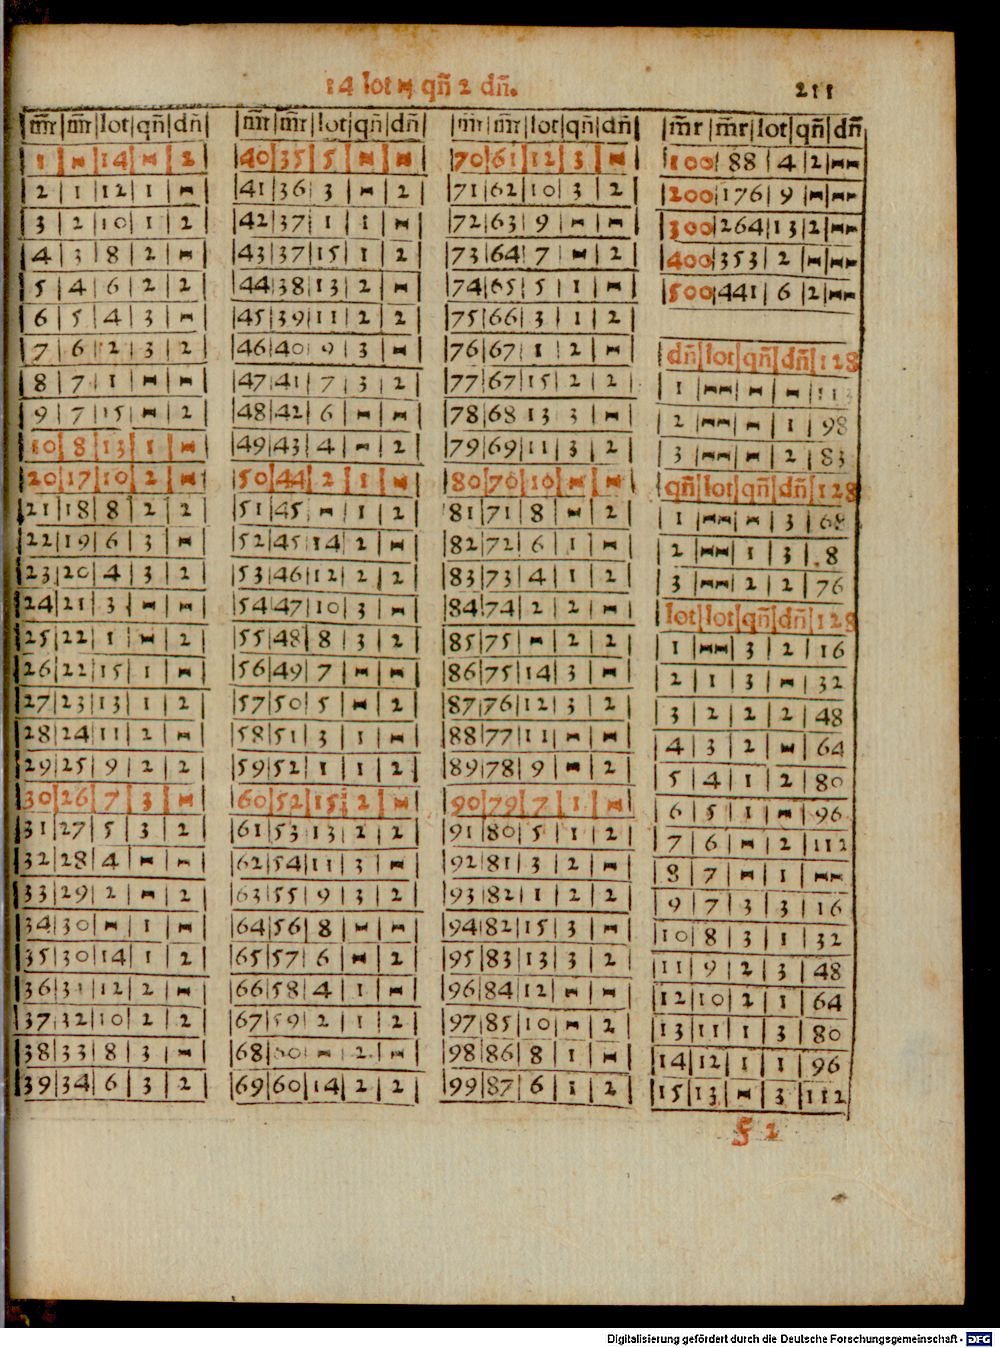 14 lot ⋈ qñ 2 dñ. 211
|m̃r|m̃r|lot|qñ|dñ|
|1|⋈|14|⋈|2|
|2|1|12|1|⋈|
|3|2|10|1|2|
|4|3|8|2|⋈|
|5|4|6|2|2|
|6|5|4|3|⋈|
|7|6|2|3|2|
|8|7|1|⋈|⋈|
|9|7|15|⋈|2|
|10|8|13|1|⋈|
|20|17|10|2|⋈|
|21|18|8|2|2|
|22|19|6|3|⋈|
|23|20|4|3|2|
|24|21|3|⋈|⋈|
|25|22|1|⋈|2|
|26|22|15|1|⋈|
|27|23|13|1|2|
|28|24|11|2|⋈|
|29|25|9|2|2|
|30|26|7|3|⋈|
|31|27|5|3|2|
|32|28|4|⋈|⋈|
|33|29|2|⋈|2|
|34|30|⋈|1|⋈|
|35|30|14|1|2|
|36|31|12|2|⋈|
|37|32|10|2|2|
|38|33|8|3|⋈|
|39|34|6|3|2|
|m̃r|m̃r|lot|qñ|dñ|
|40|35|5|⋈|⋈|
|41|36|3|⋈|2|
|42|37|1|1|⋈|
|43|37|15|1|2|
|44|38|13|2|⋈|
|45|39|11|2|2|
|46|40|9|3|⋈|
|47|41|7|3|2|
|48|42|6|⋈|⋈|
|49|43|4|⋈|2|
|50|44|2|1|⋈|
|51|45|⋈|1|2|
|52|45|14|2|⋈|
|53|46|12|2|2|
|54|47|10|3|⋈|
|55|48|8|3|2|
|56|49|7|⋈|⋈|
|57|50|5|⋈|2|
|58|51|3|1|⋈|
|59|52|1|1|2|
|60|52|15|2|⋈|
|61|53|13|2|2|
|62|54|11|3|⋈|
|63|55|9|3|2|
|64|56|8|⋈|⋈|
|65|57|6|⋈|2|
|66|58|4|1|⋈|
|67|59|2|1|2|
|68|60|⋈|2|⋈|
|69|60|14|2|2|
|m̃r|m̃r|lot|qñ|dñ|
|70|61|12|3|⋈|
|71|62|10|3|2|
|72|63|9|⋈|⋈|
|73|64|7|⋈|2|
|74|65|5|1|⋈|
|75|66|3|1|2|
|76|67|1|2|⋈|
|77|67|15|2|2|
|78|68|13|3|⋈|
|79|69|11|3|2|
|80|70|10|⋈|⋈|
|81|71|8|⋈|2|
|82|72|6|1|⋈|
|83|73|4|1|2|
|84|74|2|2|⋈|
|85|75|⋈|2|2|
|86|75|14|3|⋈|
|87|76|12|3|2|
|88|77|11|⋈|⋈|
|89|78|9|⋈|2|
|90|79|7|1|⋈|
|91|80|5|1|2|
|92|81|3|2|⋈|
|93|82|1|2|2|
|94|82|15|3|⋈|
|95|83|13|3|2|
|96|84|12|⋈|⋈|
|97|85|10|⋈|2|
|98|86|8|1|⋈|
|99|87|6|1|2|
|m̃r|m̃r|lot|qñ|dñ|
|100|88|4|2|⋈⋈
|200|176|9|⋈|⋈⋈
|300|264|13|2|⋈⋈
|400|353|2|⋈|⋈⋈
|500|441|6|2|⋈⋈
|dñ|lot|qñ|dñ|128
|1|⋈⋈|⋈|⋈|113
|2|⋈⋈|⋈|1|98
|3|⋈⋈|⋈|2|83
|qñ|lot|qñ|dñ|128
|1|⋈⋈|⋈|3|68
|2|⋈⋈|1|3|8
|3|⋈⋈|2|2|76
|lot|lot|qñ|dñ|128
|1|⋈⋈|3|2|16
|2|1|3|⋈|32
|3|2|2|2|48
|4|3|2|⋈|64
|5|4|1|2|80
|6|5|1|⋈|96
|7|6|⋈|2|112
|8|7|⋈|1|⋈⋈
|9|7|3|3|16
|10|8|3|1|32
|11|9|2|3|48
|12|10|2|1|64
|13|11|1|3|80
|14|12|1|1|96
|15|13|⋈|3|112
ʃ 2
Digitalisierung gefördert durch die Deutsche Forschungsgemeinschaft - DFG